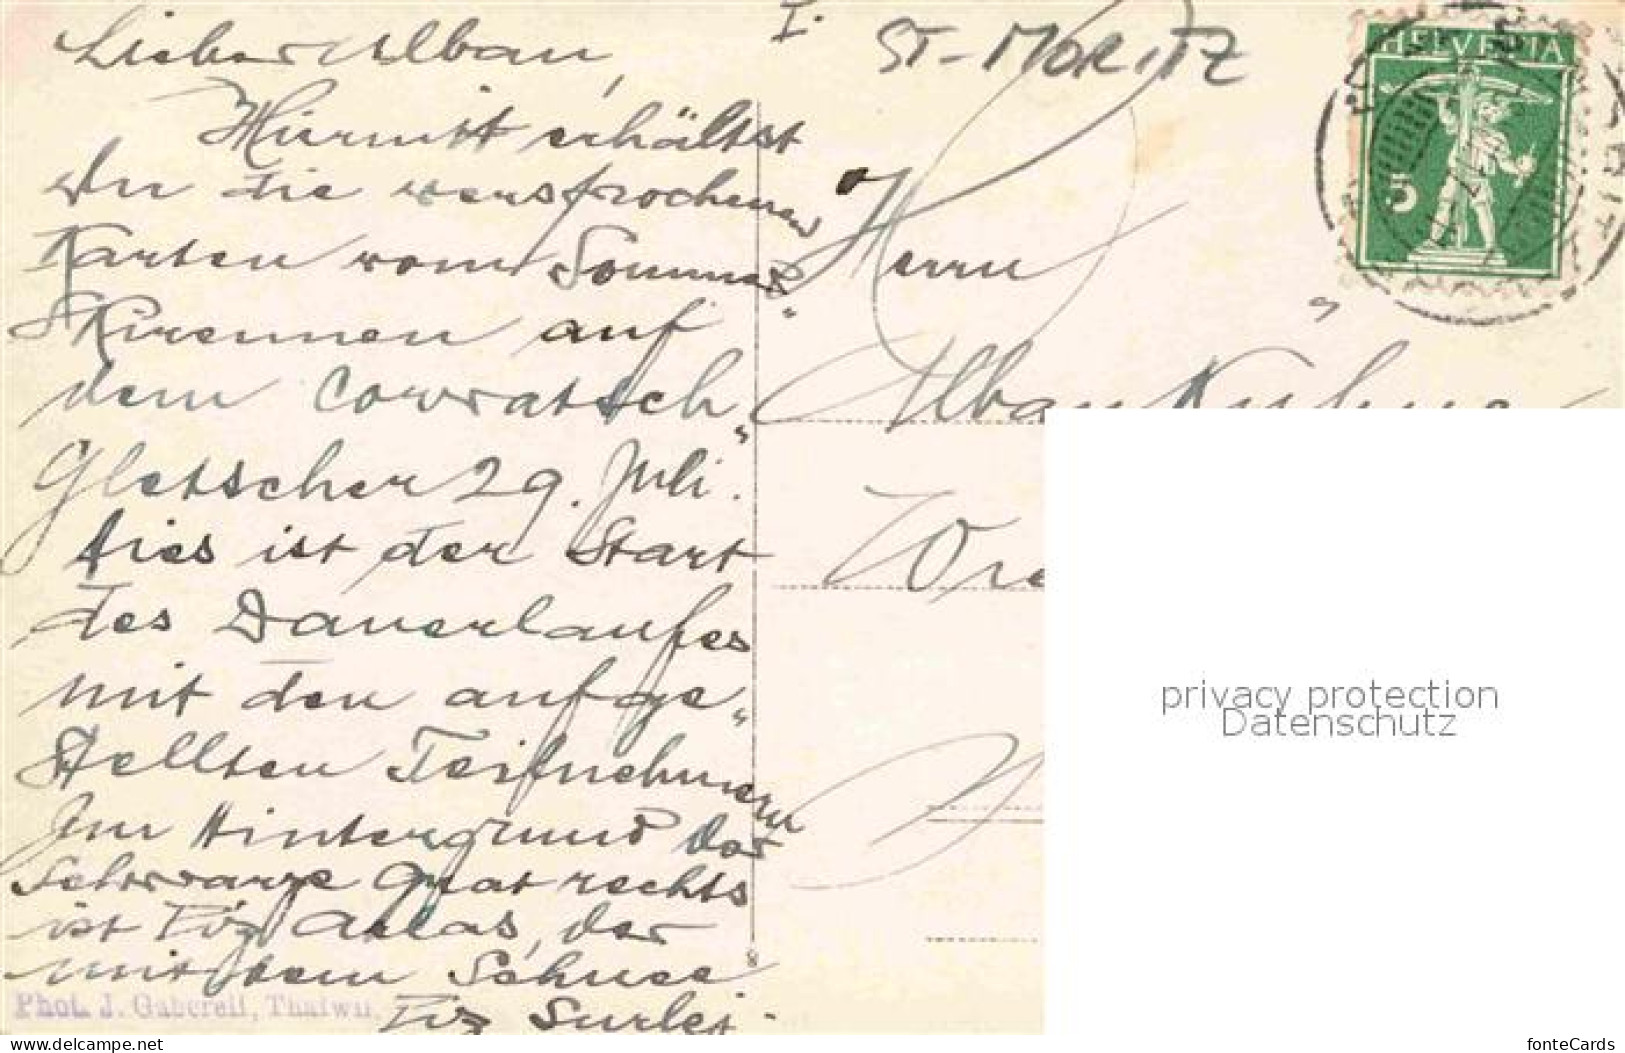 I.
ST-MORITZ
HELVETIA
5
Lieber Alban,
Hiermitt erhältst
du die versprochenen
Karten vom Sommer
Skirennen auf
dem Corvatsch"
Gletscher 29. Juli.
dies ist der Start
des Dauerlaufes
mit den aufge"
stellten Teilnehmern
Im Hintergrund der
Schwarze Grat rechts
ist Piz Arlas, der
mit dem Schnee
Piz Surlej.
Herrn
Alban Kuhne
Phot. J. Gaberell, Thalwil.
privacy protection
Datenschutz
www.delcampe.net
fonteCards